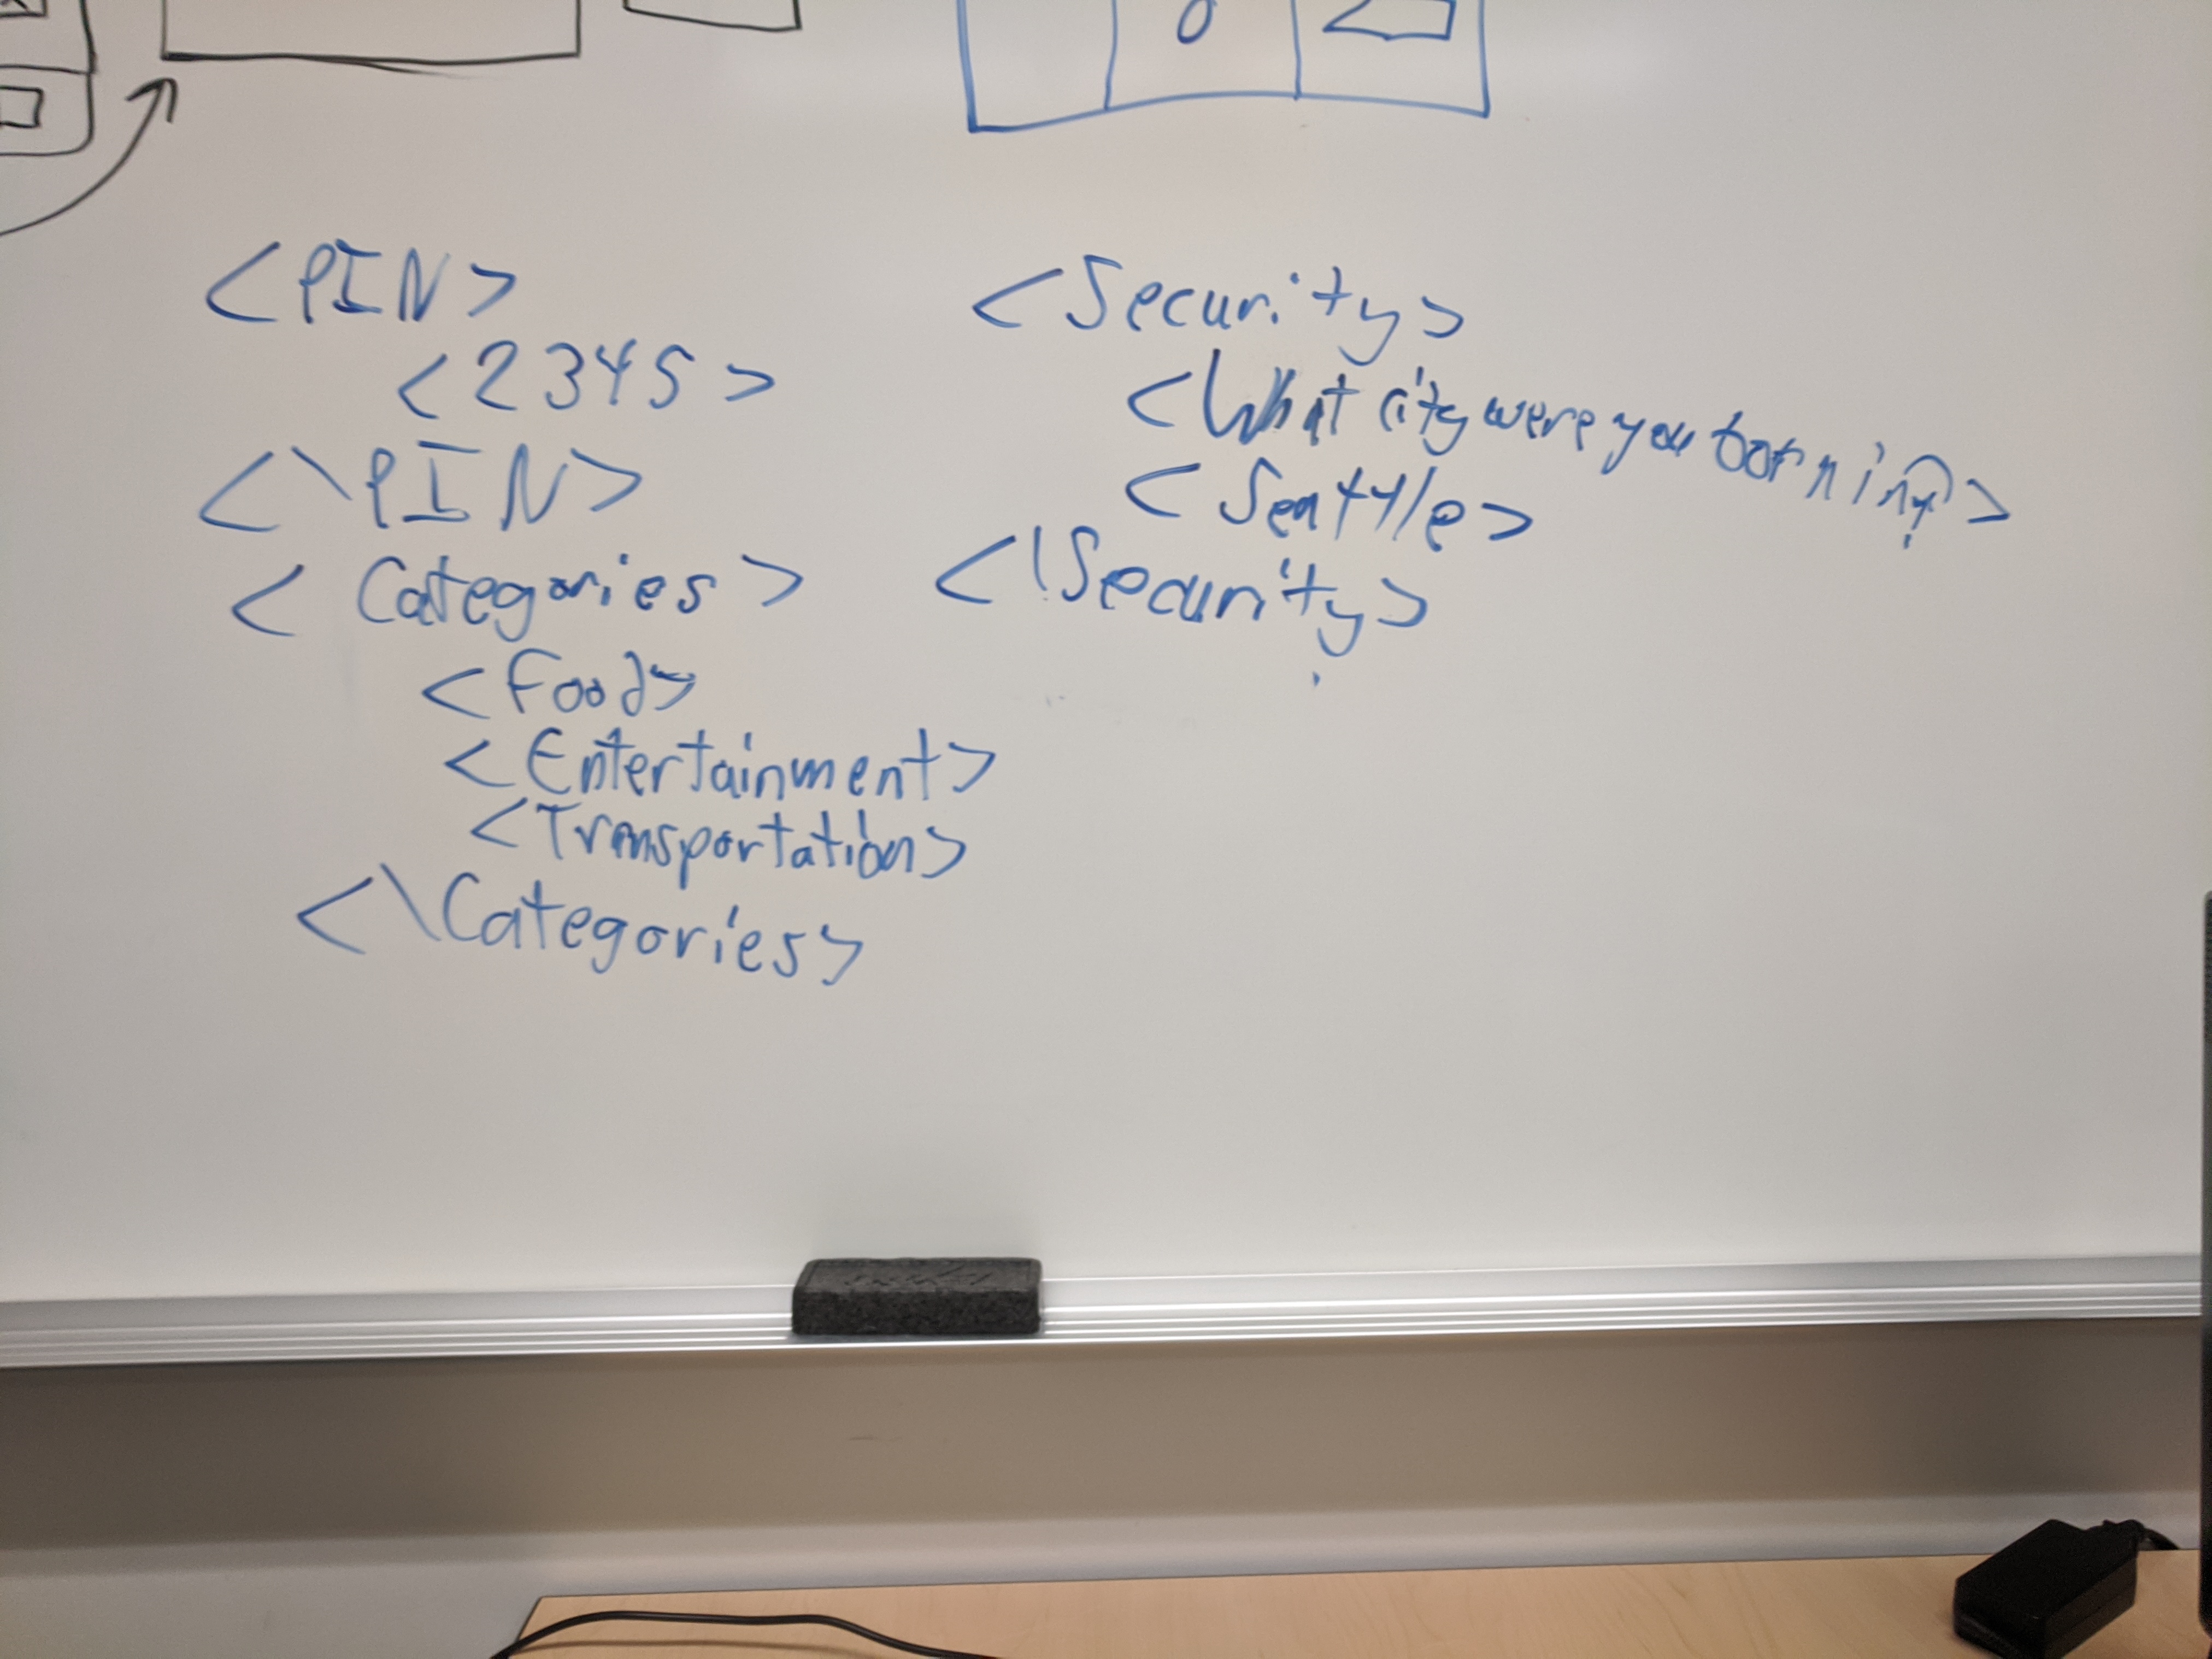 0
<PIN>
<2345>
<\PIN>
<Categories>
<Food>
<Entertainment>
<Transportation>
<\Categories>
<Security>
<What city were you born in?>
<Seattle>
<\Security>